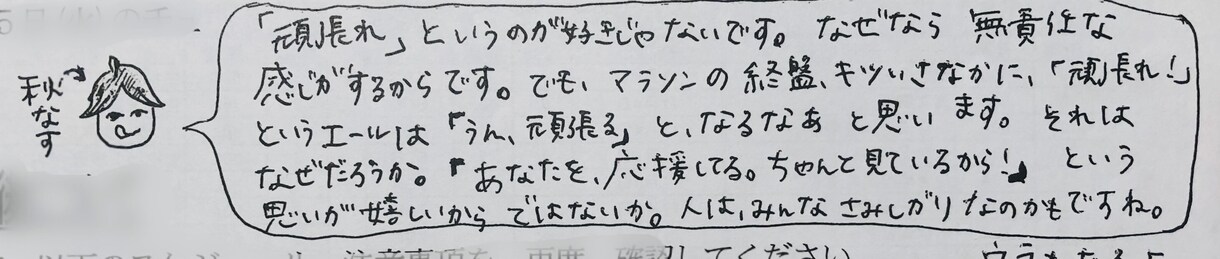 「頑張れ」というのが好きじゃないです。なぜなら 無責任な
感じがするからです。でも、マラソンの終盤、キツいさなかに、「頑張れ!」
というエールは「うん、頑張る」と、なるなあ と思います。それは
なぜだろうか。「あなたを、応援してる。ちゃんと見ているから!」という
思いが嬉しいからではないか。人は、みんなさみしがりなのかもですね。
秋なす
注意事項を 再度 確認してください